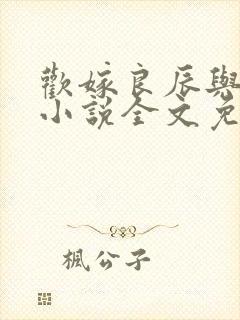 歡嫁良辰與
小說全文免
楓公子